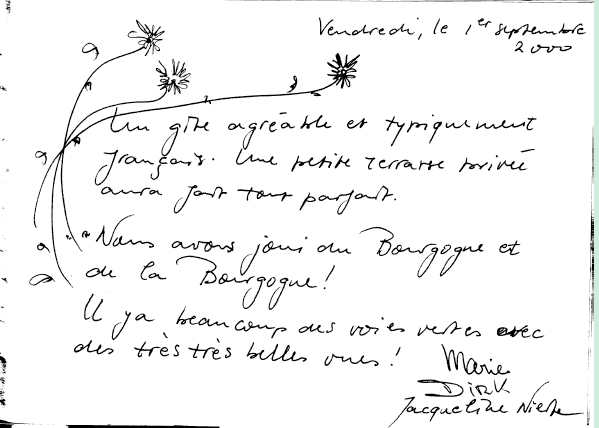 Vendredi, le 1er septembre
2000
Un gîte agréable et typiquement
français. Une petite terrasse privée
aura fait tout parfait.
Nous avons joui du Bourgogne et
de la Bourgogne!
Il ya beaucoup des voies vertes avec
des très très belles vues!
Marie
Dirk
Jacqueline